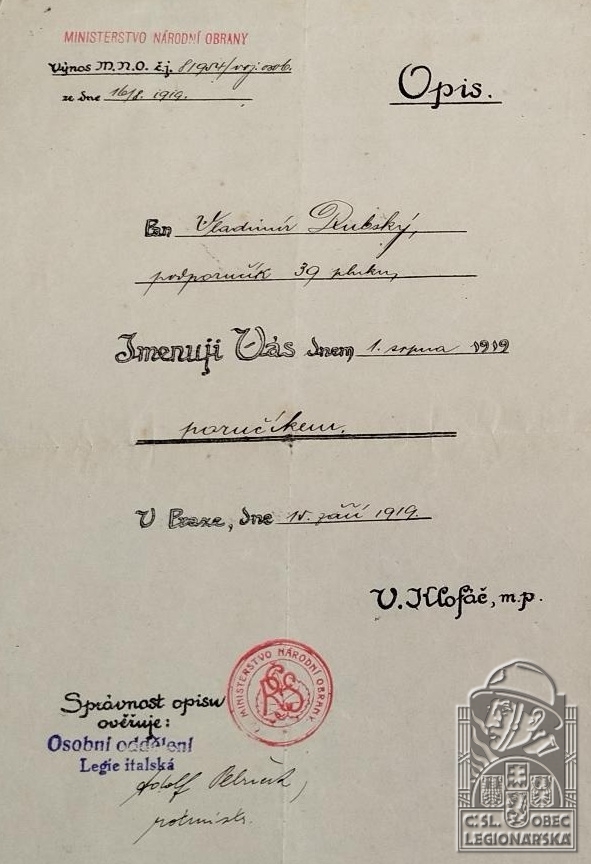 MINISTERSTVO NÁRODNÍ OBRANY
Výnos M.N.O. č.j. 81954/voj.osob.
ze dne 16/8. 1919.
Opis.
Pan Vladimír Rubský,
podporučík 39 pluku,
Jmenuji Vás dnem 1. srpna 1919
poručíkem.
V Praze, dne 15. září 1919.
V. Klofáč, m.p.
MINISTERSTVO NÁRODNÍ OBRANY
RČS
Správnost opisu
ověřuje:
Osobní oddělení
Legie italská
Adolf
rotmistr.
Č:SL. OBEC
LEGIONÁŘSKÁ